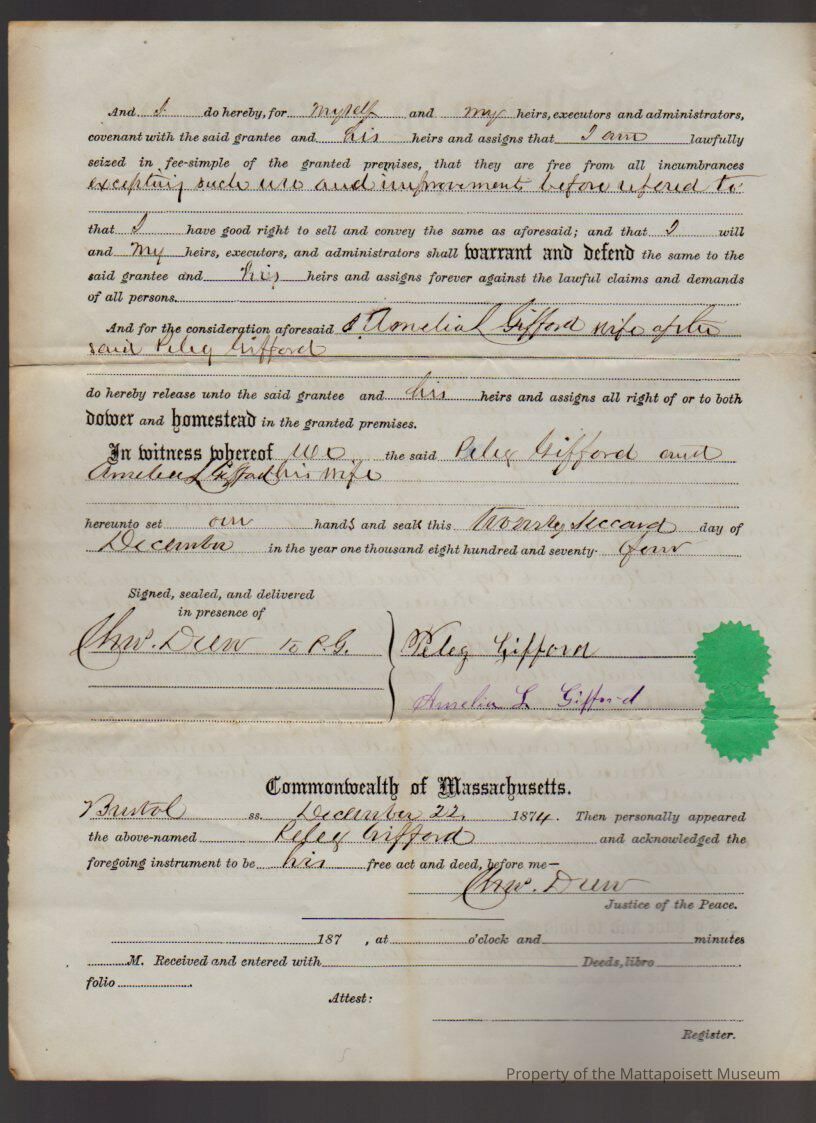 And I do hereby, for myself and my heirs, executors and administrators,
covenant with the said grantee and his heirs and assigns that I am lawfully
seized in fee-simple of the granted premises, that they are free from all incumbrances
excepting such use and improvements before refered to
that I have good right to sell and convey the same as aforesaid; and that I will
and my heirs, executors, and administrators shall warrant and defend the same to the
said grantee and his heirs and assigns forever against the lawful claims and demands
of all persons.
And for the consideration aforesaid I Amelia L Gifford wife of the
said Peleg Gifford
do hereby release unto the said grantee and his heirs and assigns all right of or to both
dower and homestead in the granted premises.
In witness whereof we the said Peleg Gifford and
Amelia L Gifford his wife
hereunto set our hands and seals this twenty second day of
December in the year one thousand eight hundred and seventy-four
Signed, sealed, and delivered
in presence of
Chas. Drew to P.G. Peleg Gifford
Amelia L Gifford
Commonwealth of Massachusetts.
Bristol ss. December 22. 1874. Then personally appeared
the above-named Peleg Gifford and acknowledged the
foregoing instrument to be his free act and deed, before me—
Chas. Drew
Justice of the Peace.
187 , at o'clock and minutes
M. Received and entered with Deeds, libro
folio
Attest:
Register.
Property of the Mattapoisett Museum